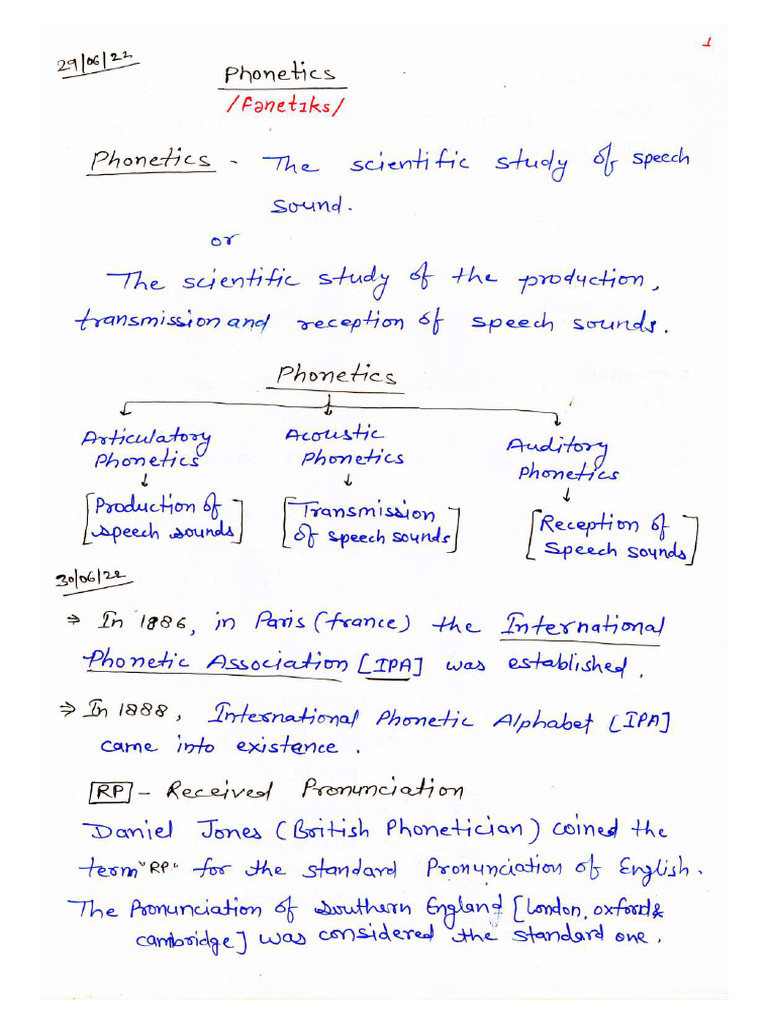 1
29/06/22
Phonetics
/fənetɪks/
Phonetics - The scientific study of speech
sound.
or
The scientific study of the production,
transmission and reception of speech sounds.
Phonetics
Articulatory Phonetics
[Production of speech sounds]
Acoustic Phonetics
[Transmission of speech sounds]
Auditory Phonetics
[Reception of speech sounds]
30/06/22
⇒ In 1886, in Paris (france) the International
Phonetic Association [IPA] was established.
⇒ In 1888, International Phonetic Alphabet [IPA]
came into existance.
RP - Received Pronunciation
Daniel Jones (British Phonetician) coined the
term "RP" for the standard Pronunciation of English.
The Pronunciation of southern England [London, oxford &
cambridge] was considered the standard one.